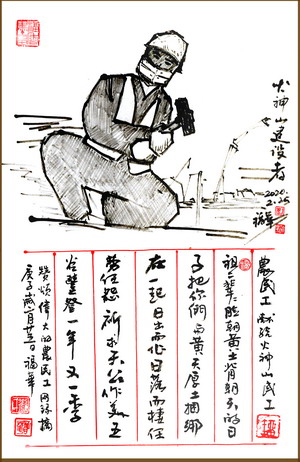 火神山建设者
2020.
2.25
福华
農民工 献给火神山民工
祖々辈々脸朝黄土背朝天的日
子把你们与黄天厚土捆绑
在一起日出而作日落而栖任
劳任怨祈求天公作美五
谷豐登一年又一季
赞颂伟大的農民工网络摘
庚子歲二月廿五日福华